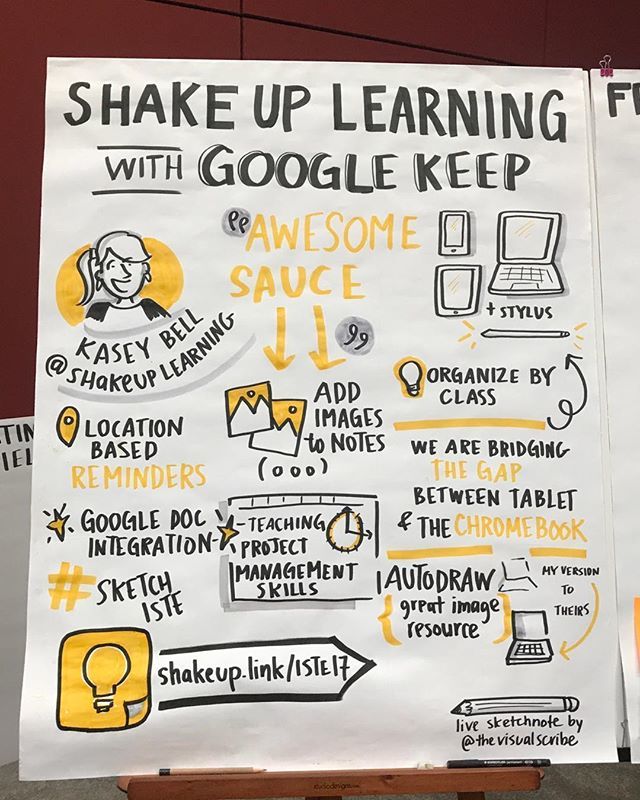 SHAKE UP LEARNING
WITH GOOGLE KEEP
"AWESOME
SAUCE"
KASEY BELL
@SHAKEUPLEARNING
+ STYLUS
ORGANIZE BY
CLASS
ADD
IMAGES
to NOTES
(000)
LOCATION
BASED
REMINDERS
WE ARE BRIDGING
THE GAP
BETWEEN TABLET
& THE CHROMEBOOK
GOOGLE DOC
INTEGRATION
- TEACHING
PROJECT
MANAGEMENT
SKILLS
# SKETCH
ISTE
AUTODRAW
{great image
resource}
MY VERSION
TO
THEIRS
shakeup.link/ISTE17
live sketchnote by
@thevisualscribe